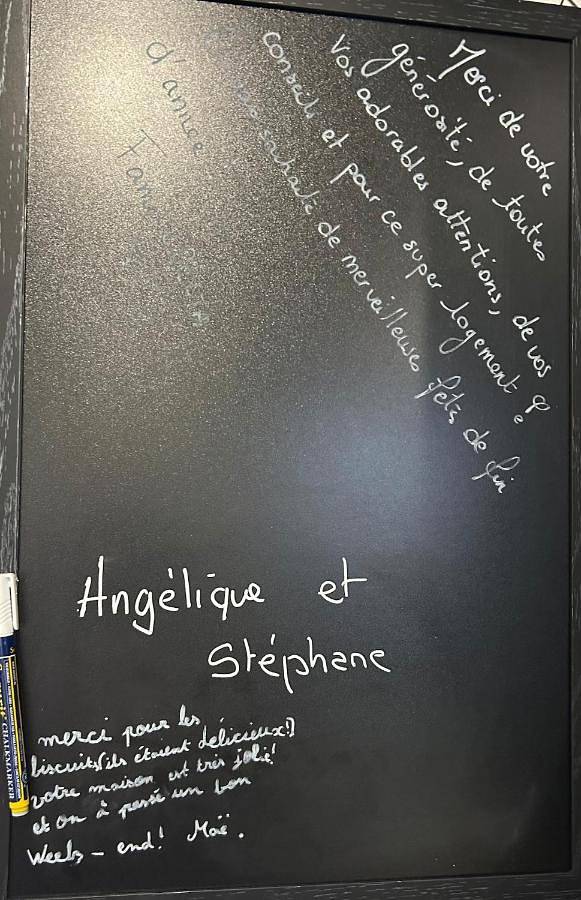 Merci de votre
générosité, de toutes
vos adorables attentions, de vos
conseils et pour ce super logement
souhaite de merveilleuses fêtes de fin
d'année
Angélique et
Stéphane
merci pour les
biscuits ils étaient délicieux!
votre maison est très jolie!
et on à passé un bon
Weeks-end! Maë.
CHALKMARKER